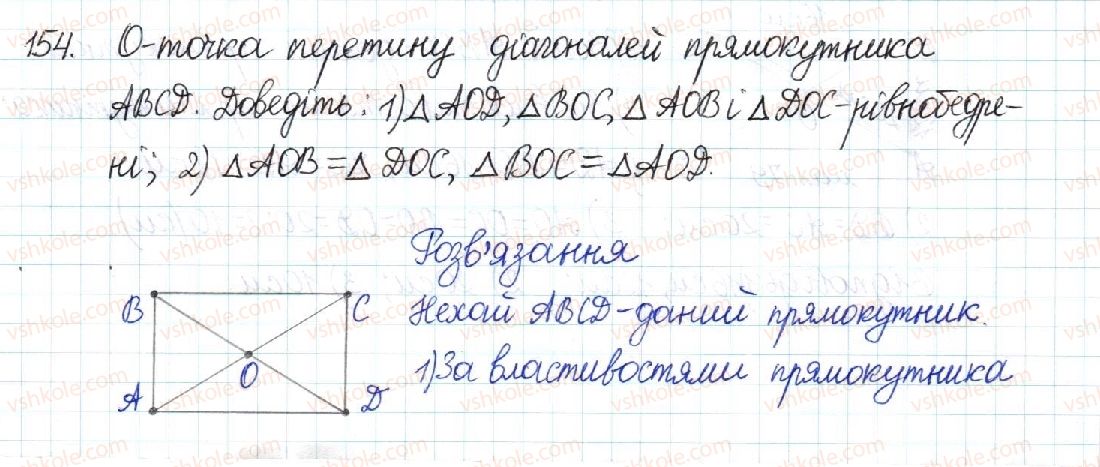 154. О-точка перетину діагоналей прямокутника
ABCD. Доведіть: 1) △AOD, △BOC, △AOB і △DOC-рівнобедре-
ні; 2) △AOB = △DOC, △BOC = △AOD.
Розв'язання
B C Нехай ABCD-даний прямокутник.
O 1) За властивостями прямокутника
A D